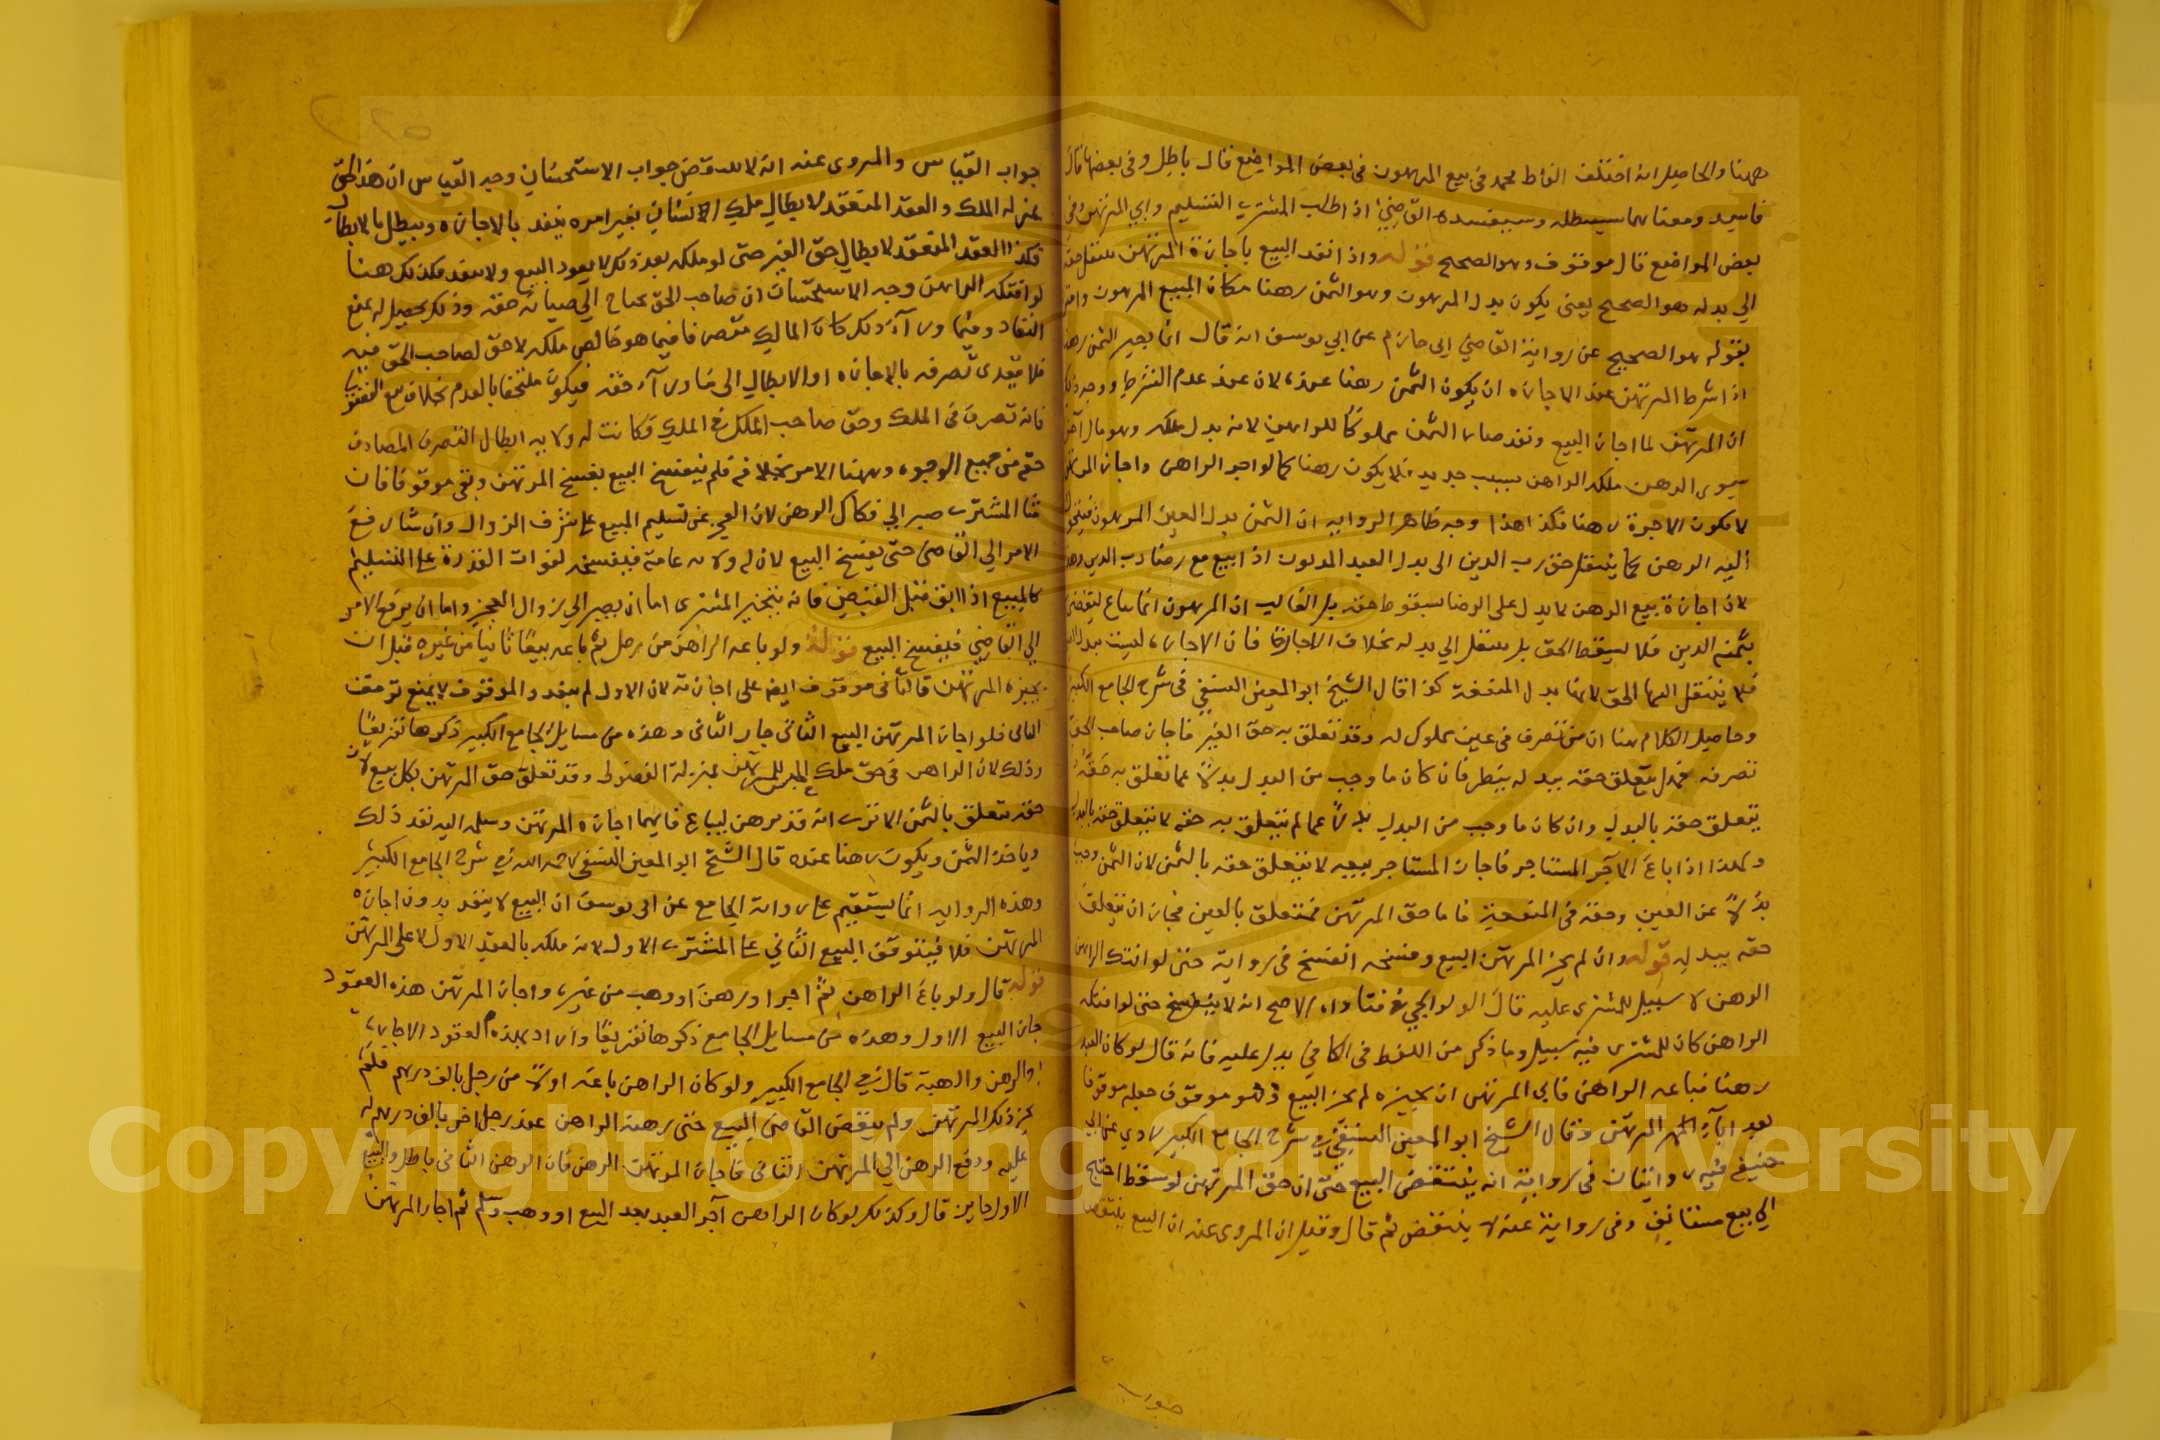 ههنا والحاصل انه اختلف الفاظ محمد في بيع المرهون في بعض المواضع قال باطل وفي بعضها قال
فاسد ومعناهما سيبطله وسيفسده القاضي اذا طلب المشتري التسليم وابي المرتهن وفي
بعض المواضع قال موقوف وهو الصحيح قوله واذا نفذ البيع باجازة المرتهن ينتقل حقه
الي بدله هو الصحيح يعني يكون بدل المرهون وهو الثمن رهنا مكان المبيع المرهون
بقوله هو الصحيح عن رواية القاضي ابي حازم عن ابي يوسف انه قال انما يصير الثمن رهنا
اذا شرط المرتهن عند الاجازه ان يكون الثمن رهنا عنده لان عند عدم الشرط ووجه ذلك
ان المرتهن لما اجاز البيع ونفذ صار الثمن مملوكا للراهن لانه بدل ملكه وهو مال آخر
سوى الرهن ملكه الراهن بسبب جديد فلا يكون رهنا كما لو اجر الراهن واجاز المرتهن
لا يكون الاجرة رهنا فكذا هذا وجه ظاهر الرواية ان الثمن بدل العين المرهون فيتحول
اليه الرهن كما ينتقل حق رب الدين الى بدل العبد المديون اذا بيع مع رضا رب الدين وهذا
لان اجازة بيع الرهن لا يدل على الرضا بسقوط حقه بل الغالب ان المرهون انما يباع ليقضى
بثمنه الدين فلا يسقط الحق بل ينتقل الي بدله بخلاف الاجارة فان الاجارة ليست بدل العين
فلا ينتقل اليها الحق لانها بدل المنفعة كذا قال الشيخ ابو المعين النسفي في شرح الجامع الكبير
وحاصل الكلام هنا ان من تصرف في عين مملوك له وقد تعلق به حق الغير فاجاز صاحب الحق
تصرفه هل يتعلق حقه ببدله ينظر فان كان ما وجب من البدل بدلاً عما تعلق به حقه
يتعلق حقه بالبدل وان كان ما وجب من البدل بدلاً عما لم يتعلق به حقه لا يتعلق حقه بالبدل
ولهذا اذا باع الآجر المستاجر فاجاز المستاجر بيعه لا يتعلق حقه بالثمن لان الثمن وجب
بدلاً عن العين وحقه في المنفعة فاما حق المرتهن فمتعلق بالعين فجاز ان يتعلق
حقه ببدله قوله وان لم يجز المرتهن البيع وفسخه انفسخ في رواية حتى لو افتك الراهن
الرهن لا سبيل للمشتري عليه قال الولوالجي في فتاواه الاصح انه لا ينفسخ حتى لو افتكه
الراهن كان للمشتري فيه سبيل وما ذكر من اللفظ في الكافي يدل عليه فانه قال لو كان العبد
رهنا فباعه الراهن فابى المرتهن ان يجيزه لم يجز البيع وهو موقوف جعله موقوفا
بعد اباء المرتهن وقال الشيخ ابو المعين النسفي في شرح الجامع الكبير روي عن ابي
حنيفة فيه روايتان في رواية انه ينتقض البيع حتى ان حق المرتهن لو سقط احتيج
الي بيع مستانف وفي رواية عنه لا ينتقض ثم قال وقيل ان المروى عنه ان البيع ينتقض
جواب
جواب القياس والمروى عنه انه لا ينتقض جواب الاستحسان وجه القياس ان هذا الحق
بمنزلة الملك والعقد المنعقد لابطال ملك الانسان بغير امره ينفذ بالاجازه ويبطل بالابطال
فكذا العقد المنعقد لابطال حق الغير حتى لو ملكه بعد ذلك لا يعود البيع ولا ينفذ فكذلك هنا
لو افتكه الراهن وجه الاستحسان ان صاحب الحق يحتاج الي صيانة حقه وذلك يحصل له بمنع
النفاد وفيما وراء ذلك كان المالك متصرفا فيما هو خالص ملكه لا حق لصاحب الحق فيه
فلا يتعدى تصرفه بالاجازه او الابطال الى ما وراء حقه فيكون ملتحقا بالعدم بخلاف بيع الفضولي
فانه تصرف في الملك وحق صاحب الملك في الملك فكانت له ولاية ابطال التصرف المصادف
حقه من جميع الوجوه وههنا الامر بخلافه فلم ينفسخ البيع بفسخ المرتهن وبقى موقوفا فان
شاء المشتري صبر الي فكاك الرهن لان العجز عن تسليم المبيع على شرف الزوال وان شاء رفع
الامر الي القاضي حتى يفسخ البيع لان له ولاية عامة فيفسخه لفوات القدرة على التسليم
كالمبيع اذا ابق قبل القبض فانه يتخير المشترى اما ان يصبر الي زوال العجز واما ان يرفع الامر
الي القاضي فيفسخ البيع قوله ولو باعه الراهن من رجل ثم باعه بيعا ثانيا من غيره قبل ان
يجيزه المرتهن فالثاني موقوف ايضا على اجازته لان الاول لم ينفذ والموقوف لا يمنع توقف
الثاني فلو اجاز المرتهن البيع الثاني جاز الثاني وهذه من مسايل الجامع الكبير ذكرها تفريعا
وذلك لان الراهن في حق ملك المرتهن بمنزلة الفضولي وقد تعلق حق المرتهن بكل بيع لان
حقه يتعلق بالثمن الا ترى انه قد يرهن ليباع فايهما اجازه المرتهن وسلمه اليه نفذ ذلك
وياخذ الثمن ويكون رهنا عنده قال الشيخ ابو المعين النسفي رحمه الله في شرح الجامع الكبير
وهذه الرواية انما يستقيم على رواية الجامع عن ابي يوسف ان البيع لا ينفذ بدون اجازه
المرتهن فلا فيتوقف البيع الثاني على المشتري الاول لانه ملكه بالعقد الاول لا على المرتهن
قوله قال ولو باع الراهن ثم اجر او رهن او وهب من غيره واجاز المرتهن هذه العقود
جاز البيع الاول وهذه من مسايل الجامع ذكرها تفريعا واراد بهذه العقود الاجارة
والرهن والهبة قال في الجامع الكبير ولو كان الراهن باعه اولاً من رجل بالف درهم فلم
يجز ذلك المرتهن ولم ينقض القاضي البيع حتى رهنه الراهن عند رجل اخر بالف درهم له
عليه ودفع الرهن الي المرتهن الثاني فاجاز المرتهن الرهن فان الرهن الثاني باطل والبيع
الاول جايز قال وكذلك لو كان الراهن آجر العبد بعد البيع او وهب وسلم ثم اجاز المرتهن
Copyright © King Saud University